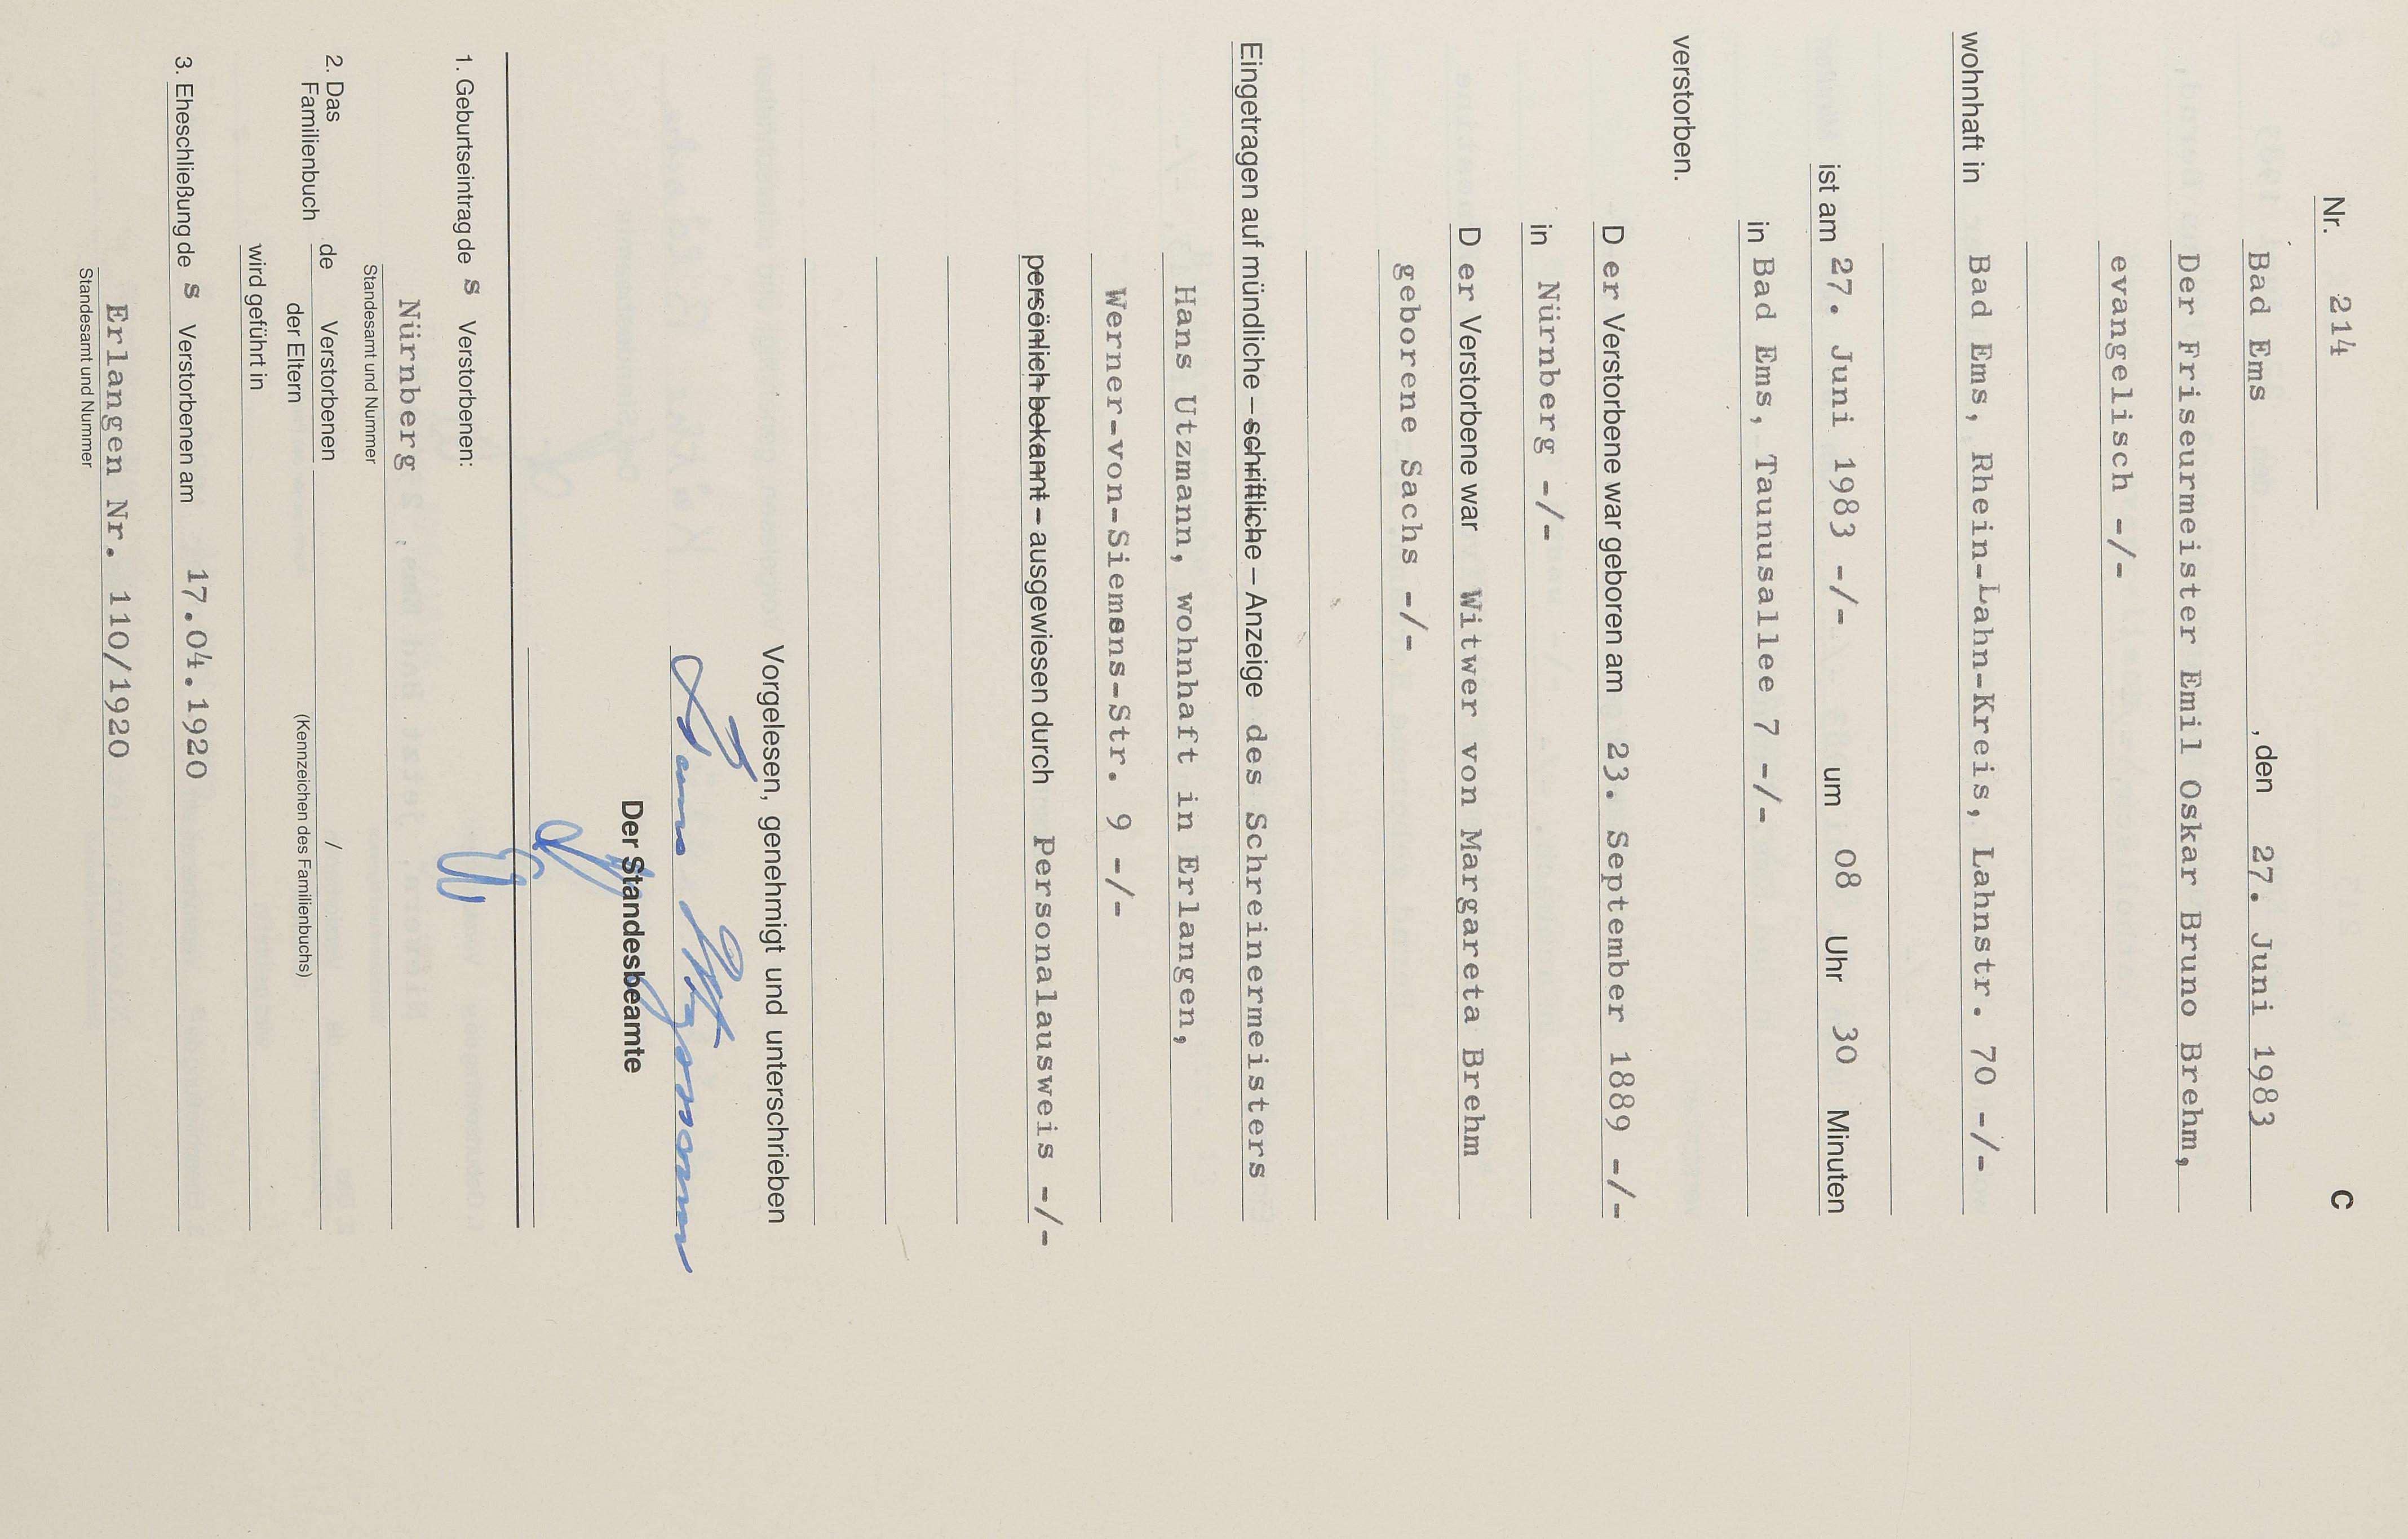 C
Nr. 214
Bad Ems , den 27. Juni 1983
Der Friseurmeister Emil Oskar Bruno Brehm,
evangelisch -/-
wohnhaft in Bad Ems, Rhein-Lahn-Kreis, Lahnstr. 70 -/-
ist am 27. Juni 1983 -/- um 08 Uhr 30 Minuten
in Bad Ems, Taunusallee 7 -/-
verstorben.
D er Verstorbene war geboren am 23. September 1889 -/-
in Nürnberg -/-
D er Verstorbene war Witwer von Margareta Brehm
geborene Sachs -/-
Eingetragen auf mündliche – schriftliche – Anzeige des Schreinermeisters
Hans Utzmann, wohnhaft in Erlangen,
Werner-von-Siemens-Str. 9 -/-
persönlich bekannt – ausgewiesen durch Personalausweis -/-
Vorgelesen, genehmigt und unterschrieben
Hans Utzmann
Der Standesbeamte
1. Geburtseintrag de s Verstorbenen:
Nürnberg
Standesamt und Nummer
2. Das Familienbuch de Verstorbenen /
der Eltern (Kennzeichen des Familienbuchs)
wird geführt in
3. Eheschließung de s Verstorbenen am 17.04.1920
Erlangen Nr. 110/1920
Standesamt und Nummer